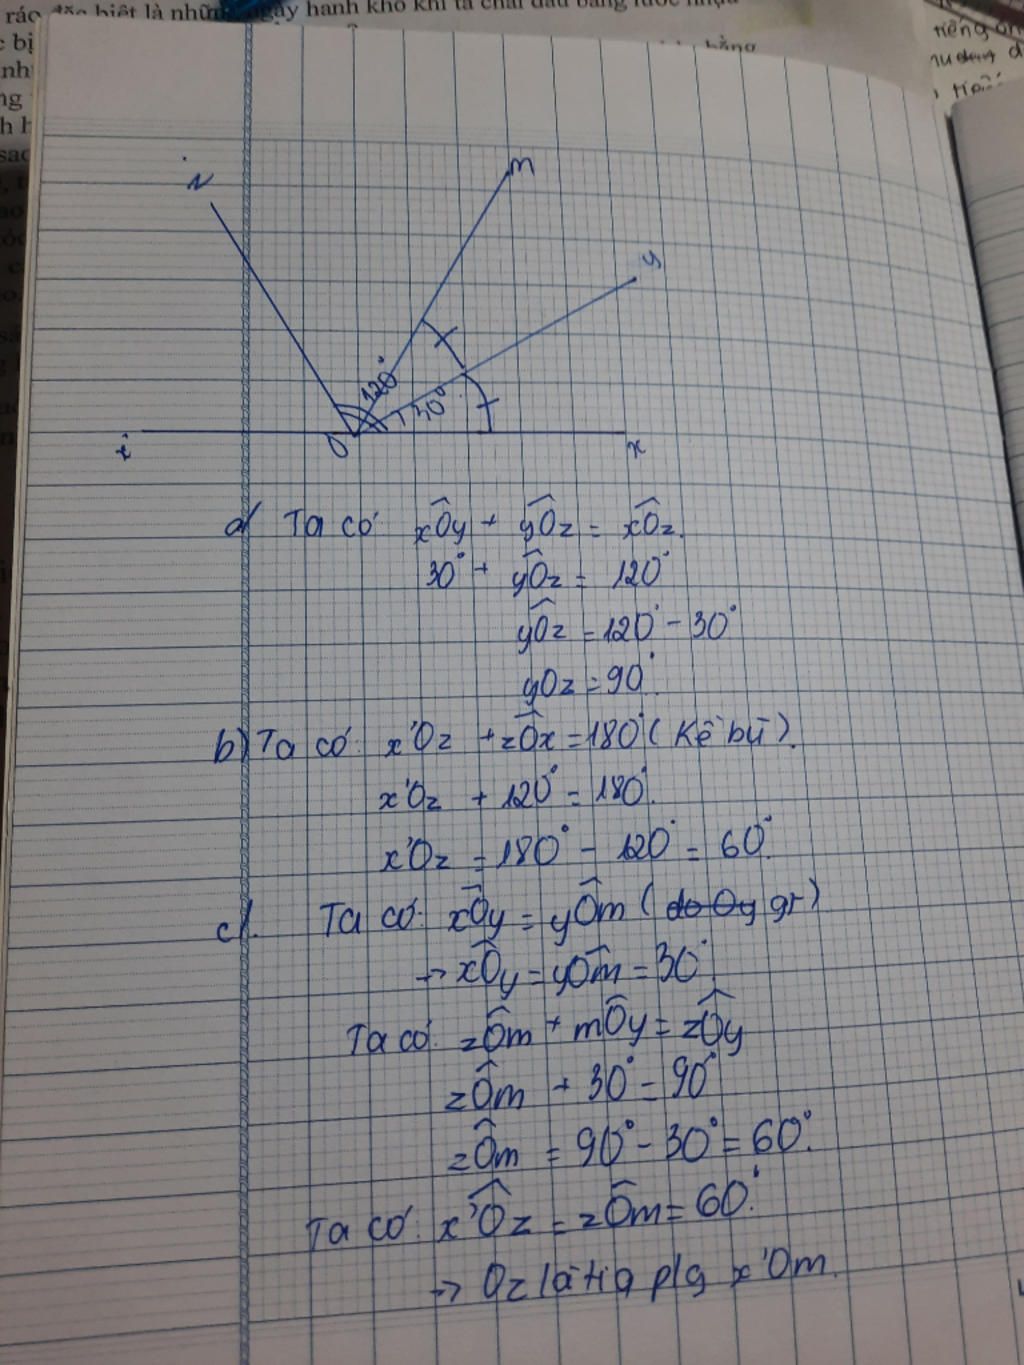 ráo đặc biệt là những ngày hanh khô khi ta chải đầu bằng lược nhựa
bằng
tiếng
z
m
y
120°
30°
O
x
a) Ta có xOy + yOz = xOz.
30° + yOz = 120°
yOz = 120° - 30°
yOz = 90°.
b) Ta có x'Oz + zOx = 180° (kề bù).
x'Oz + 120° = 180°.
x'Oz = 180° - 120° = 60°.
c). Ta có: xOy = yOm (do Oy gr)
→ xOy = yOm = 30°.
Ta có: zOm + mOy = zOy
zOm + 30° = 90°
zOm = 90° - 30° = 60°.
Ta có: x'Oz = zOm = 60°.
→ Oz là tia p/g x'Om.